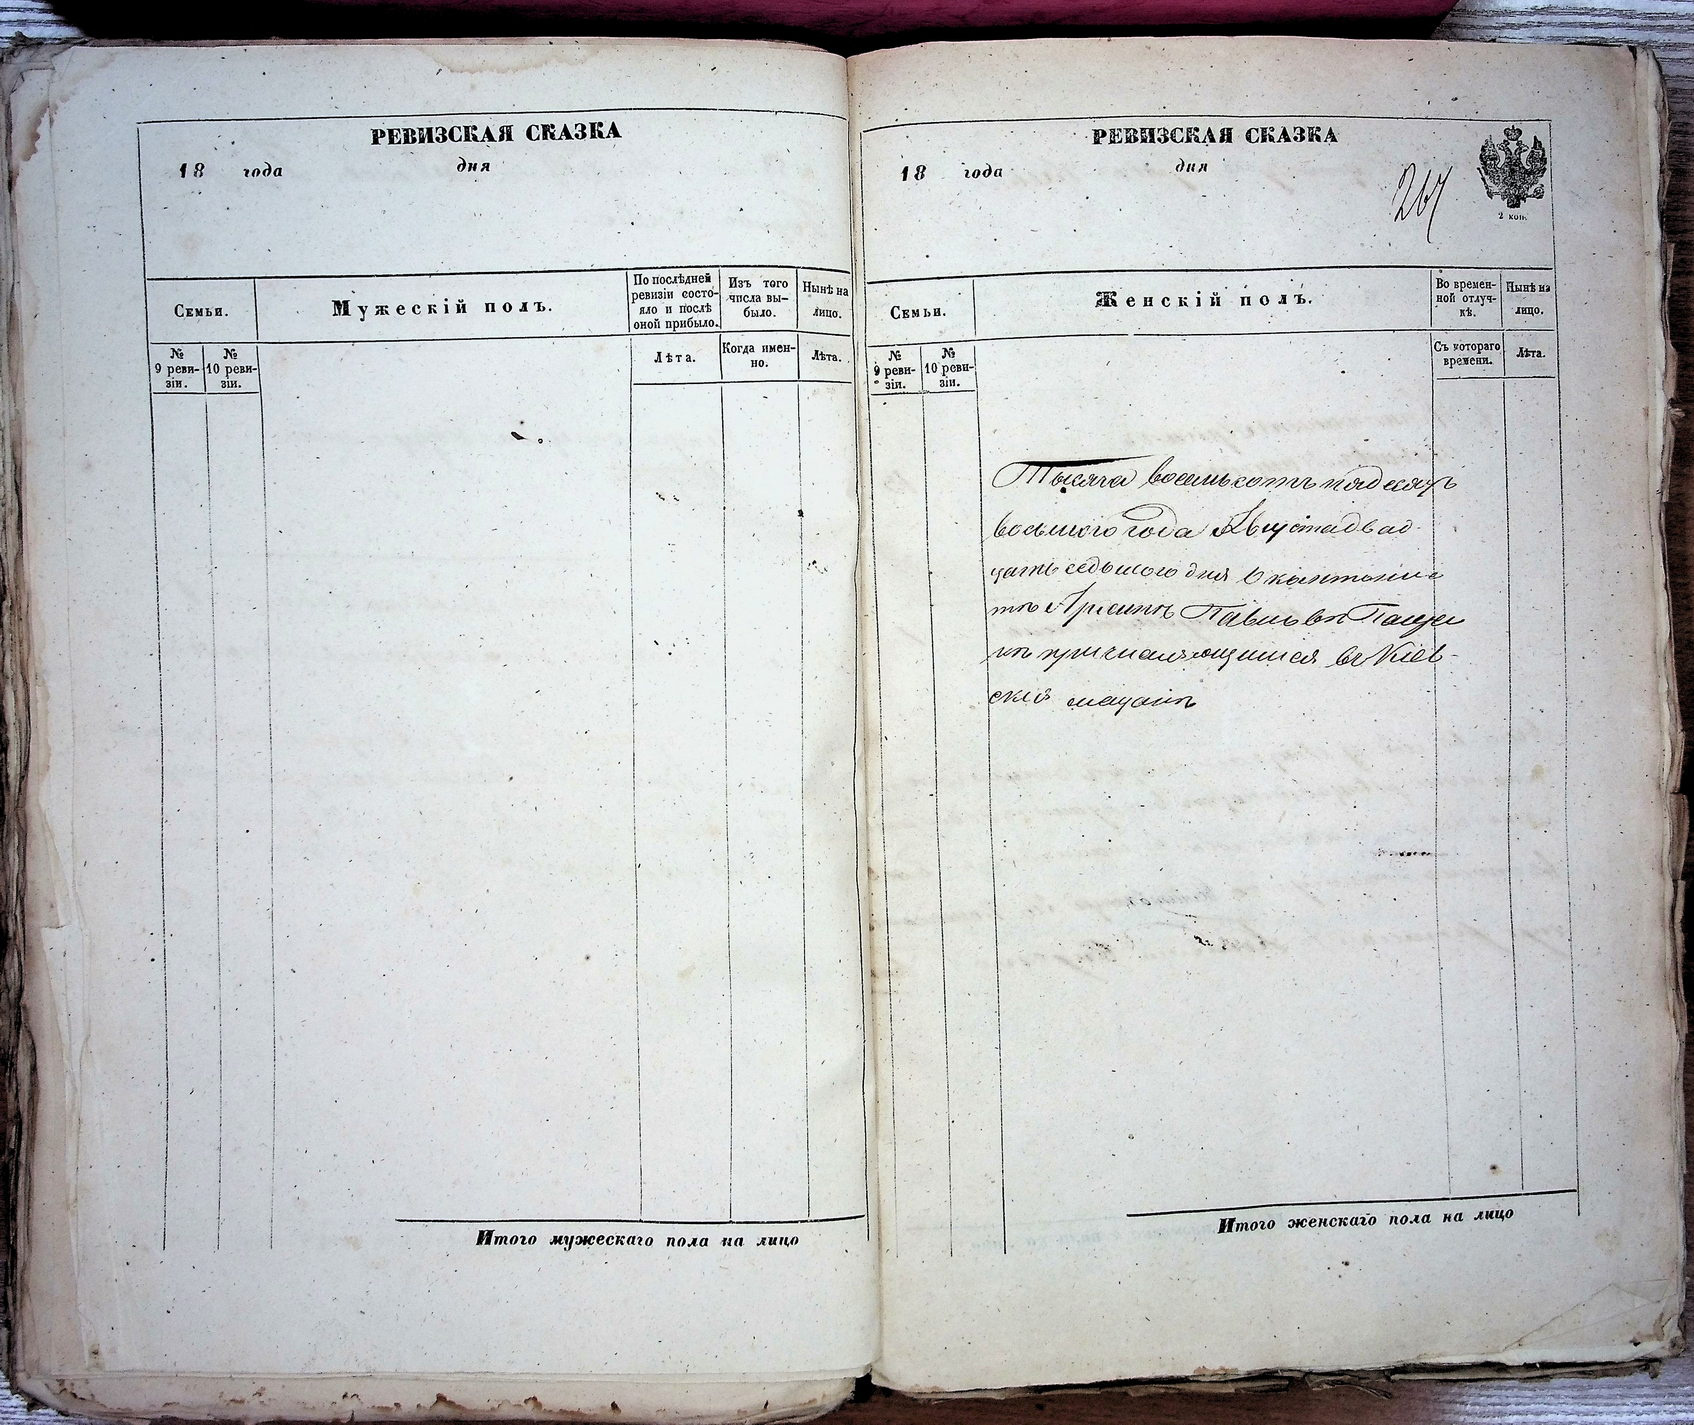 РЕВИЗСКАЯ СКАЗКА
18 года дня
Семьи.
Мужескій полъ.
По послѣдней
ревизіи состо-
яло и послѣ
оной прибыло.
Изъ того
числа вы-
было.
Нынѣ на
лицо.
№
9 реви-
зіи.
№
10 реви-
зіи.
Лѣта.
Когда имен-
но.
Лѣта.
Итого мужескаго пола на лицо
РЕВИЗСКАЯ СКАЗКА
18 года дня
264
2 коп.
Семьи.
Женскій полъ.
Во времен-
ной отлуч-
кѣ.
Нынѣ на
лицо.
№
9 реви-
зіи.
№
10 реви-
зіи.
Съ котораго
времени.
Лѣта.
Тысяча восемьсотъ пядесятъ
восьмого года Августа двад-
цать седьмого дня о
Павловѣ
причисляющимся въ Кіев-
скіе мащани
Итого женскаго пола на лицо